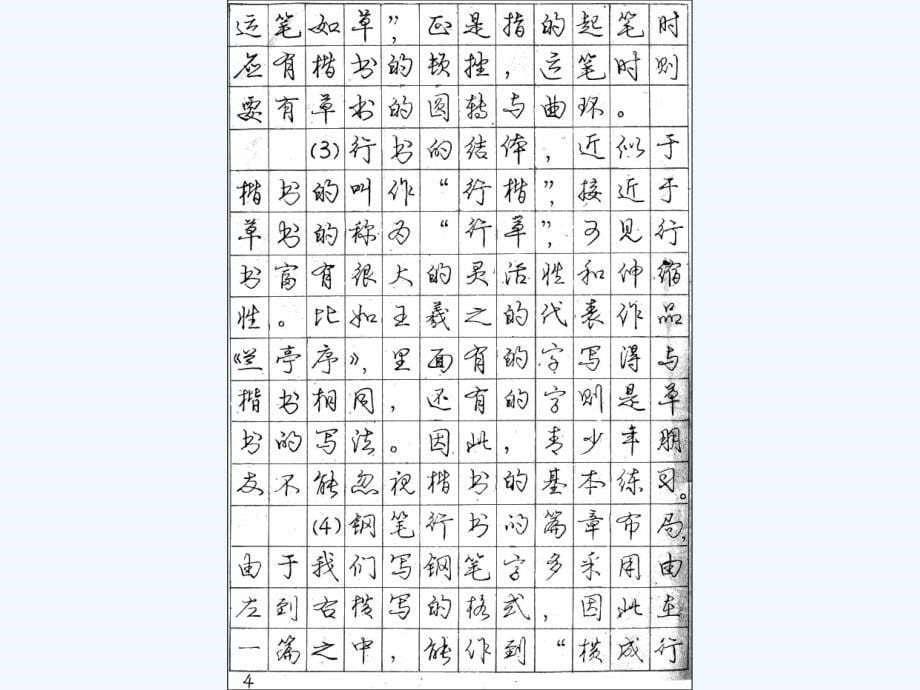 运笔如草”，正是指的起笔时
应有楷书的顿挫，运笔时则
要有草书的圆转与曲环。
(3)行书的结体，近似于
楷书的叫作“行楷”，接近于
草书的称为“行草”，可见行
书富有很大的灵活性和伸缩
性。比如王羲之的代表作品
《兰亭序》，里面有的字写得与
楷书相同，还有的字则是草
书的写法。因此，青少年朋
友不能忽视楷书的基本练习。
(4)钢笔行书的篇章布局，
由于我们写钢笔字多采用由
左到右横写的格式，因此在
一篇之中，能作到“横成行
4